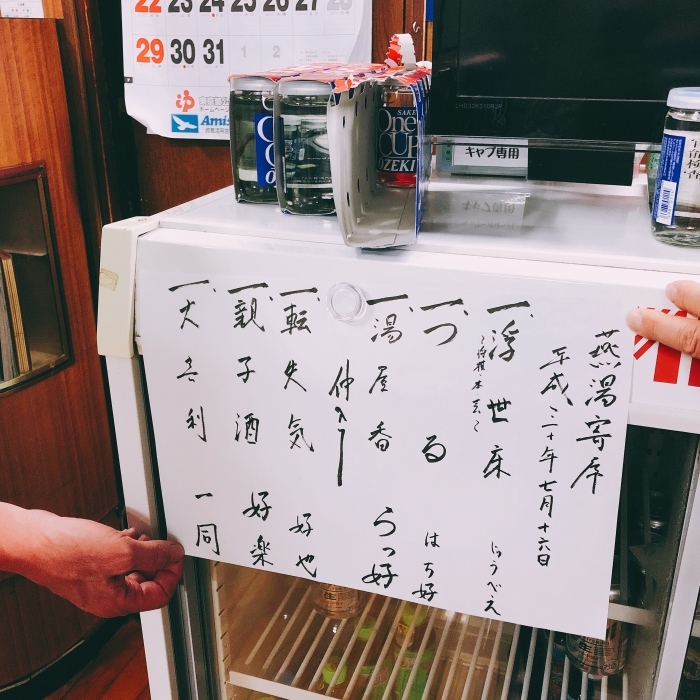 22 23 24 25 26 27 28
29 30 31 1 2
Amis
SAKE
One
CUP
OZEKI
キャブ専用
燕湯寄席
平成三十年七月十六日
一、浮世床 じゅうべえ
〜将棋・本〜
一、つる はち好
一、湯屋番 うっ好
仲入り
一、転失気 好也
一、親子酒 好楽
一、大喜利 一同